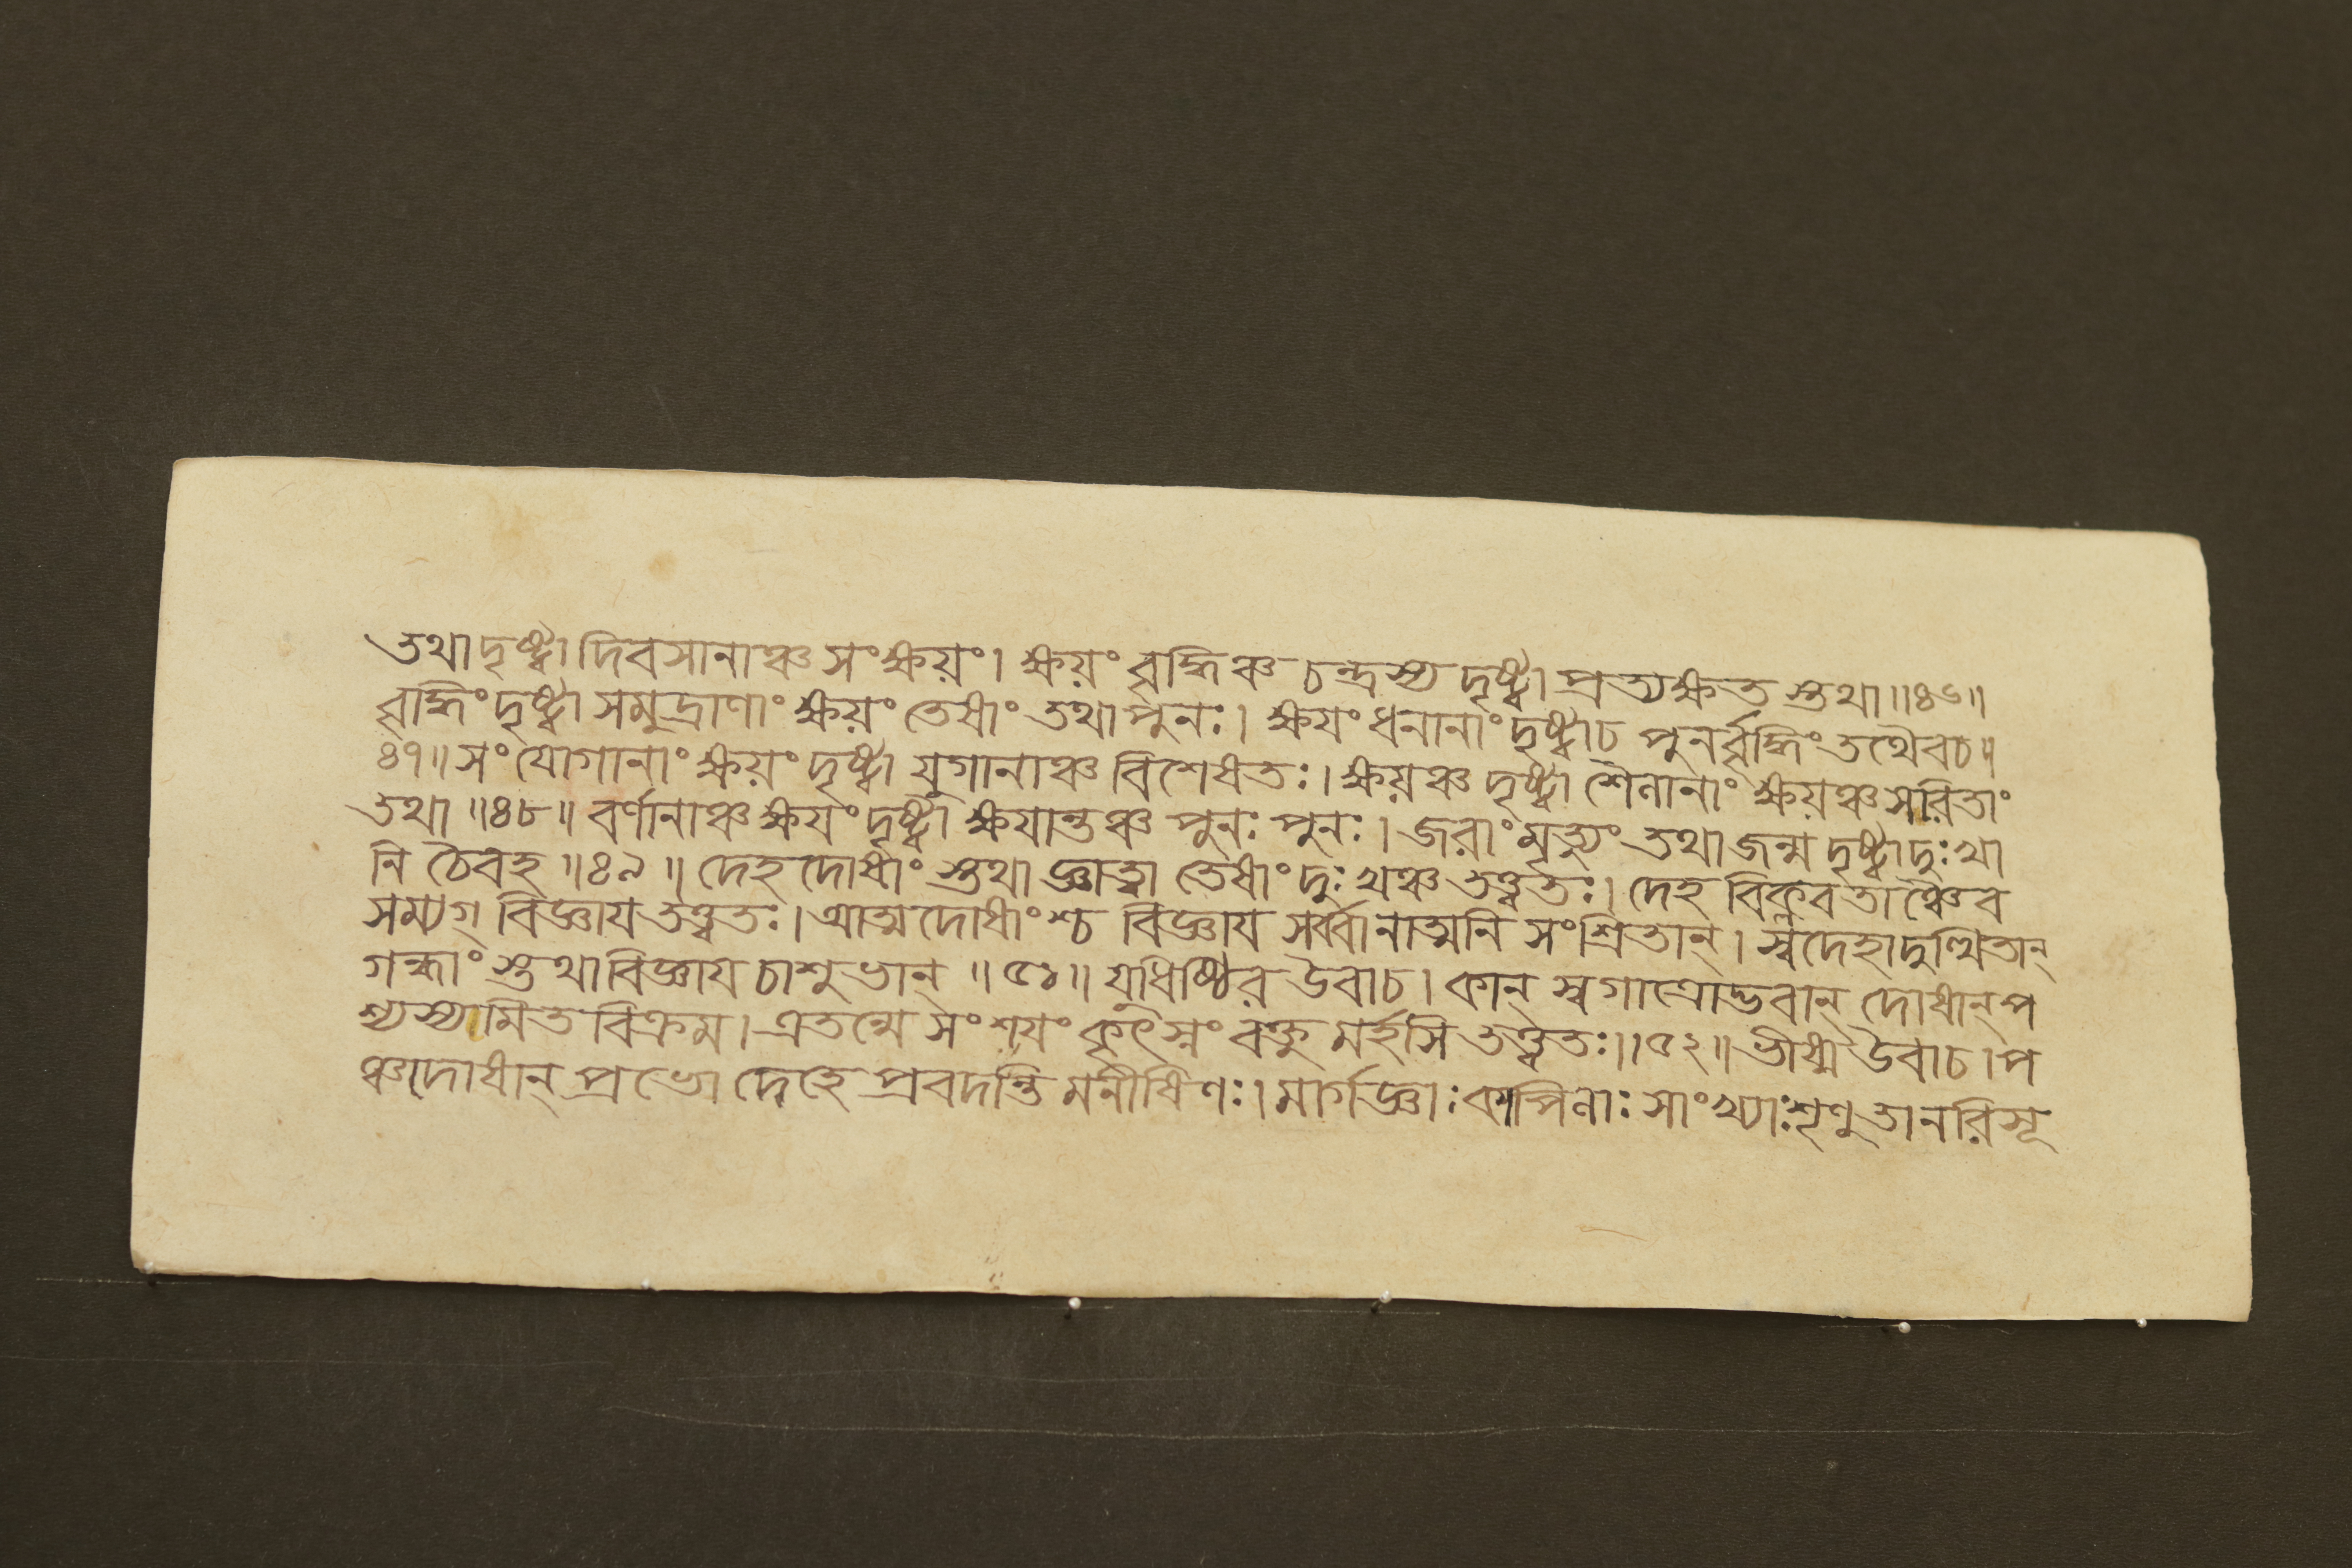 তথা দৃষ্ট্বা দিবসানাঞ্চ সংক্ষয়ং। ক্ষয়ং বৃদ্ধিঞ্চ চন্দ্রস্য দৃষ্ট্বা প্রত্যক্ষত স্তথা॥৪৬॥
বৃদ্ধিং দৃষ্ট্বা সমুদ্রাণাং ক্ষয়ং তেষাং তথা পুনঃ। ক্ষয়ং ধনানাং দৃষ্ট্বাচ পুনর্বৃদ্ধিং তথৈবচ॥
৪৭॥ সংযোগানাং ক্ষয়ং দৃষ্ট্বা যুগানাঞ্চ বিশেষতঃ। ক্ষয়ঞ্চ দৃষ্ট্বা শৈলানাং ক্ষয়ঞ্চ সরিতাং
তথা॥৪৮॥ বর্ণানাঞ্চ ক্ষয়ং দৃষ্ট্বা ক্ষয়ান্তঞ্চ পুনঃ পুনঃ। জরাং মৃত্যুং তথা জন্ম দৃষ্ট্বা দুঃখা
নি চৈবহ॥৪৯॥ দেহ দোষাং স্তথা জ্ঞাত্বা তেষাং দুঃখঞ্চ তত্ত্বতঃ। দেহ বিক্লবতাঞ্চৈব
সম্যগ্ বিজ্ঞায় তত্ত্বতঃ। আত্মদোষাংশ্চ বিজ্ঞায় সর্ব্বানাত্মনি সংশ্রিতান্। স্বদেহাদুত্থিতান্
গন্ধাং স্তথা বিজ্ঞায় চাশুভান্॥৫১॥ যুধিষ্ঠির উবাচ। কান্ স্বগাত্রোদ্ভবান্ দোষান্ প
শ্যস্যামিত বিক্রম। এতন্মে সংশয়ং কৃৎস্নং বক্তু মর্হসি তত্ত্বতঃ।।৫২॥ ভীষ্ম উবাচ। প
ঞ্চদোষান্ প্রভো দেহে প্রবদন্তি মনীষিণঃ। মার্গজ্ঞাঃ কাপিলাঃ সাংখ্যাঃ শৃণু তানরিসূ